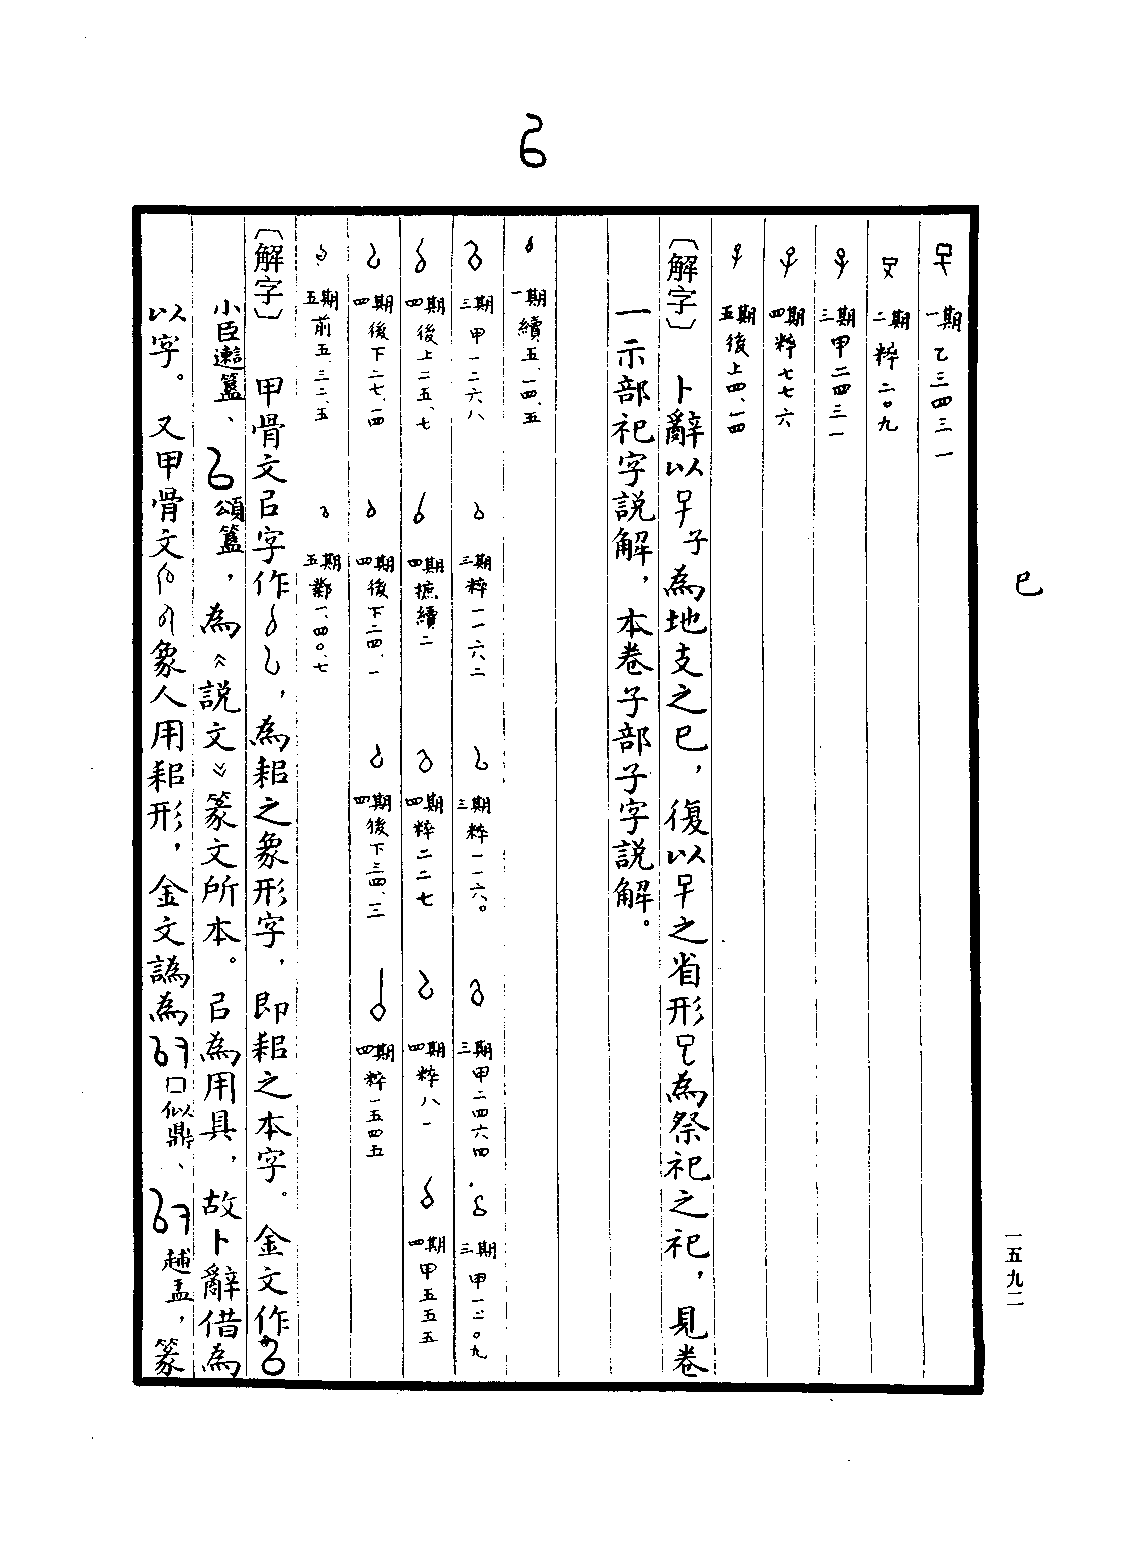 巳
一五九二
一期 乙三四三一
二期 粹二〇九
三期 甲二四三一
四期 粹七七六
五期 後上四、一四
〔解字〕 卜辭以子為地支之巳，復以之省形為祭祀之祀，見卷
一示部祀字說解，本卷子部子字說解。
一期 續五、一四、五
三期 甲一二六八 三期 粹一一六二 三期 粹一一六〇 三期 甲二四六四 三期 甲一二〇九
四期 後上二五、七 四期 摭續二 四期 粹二二七 四期 粹八一 四期 甲五五五
四期 後下二七、一四 四期 後下二四、一 四期 後下三四、三 四期 粹一五四五
五期 前五、三二、五 五期 鄴一、四〇、七
〔解字〕 甲骨文㠯字作，為耜之象形字，即耜之本字。金文作
小臣簋、頌簋，為《說文》篆文所本。㠯為用具，故卜辭借為
以字。又甲骨文象人用耜形，金文譌為□似鼎、趞孟，篆